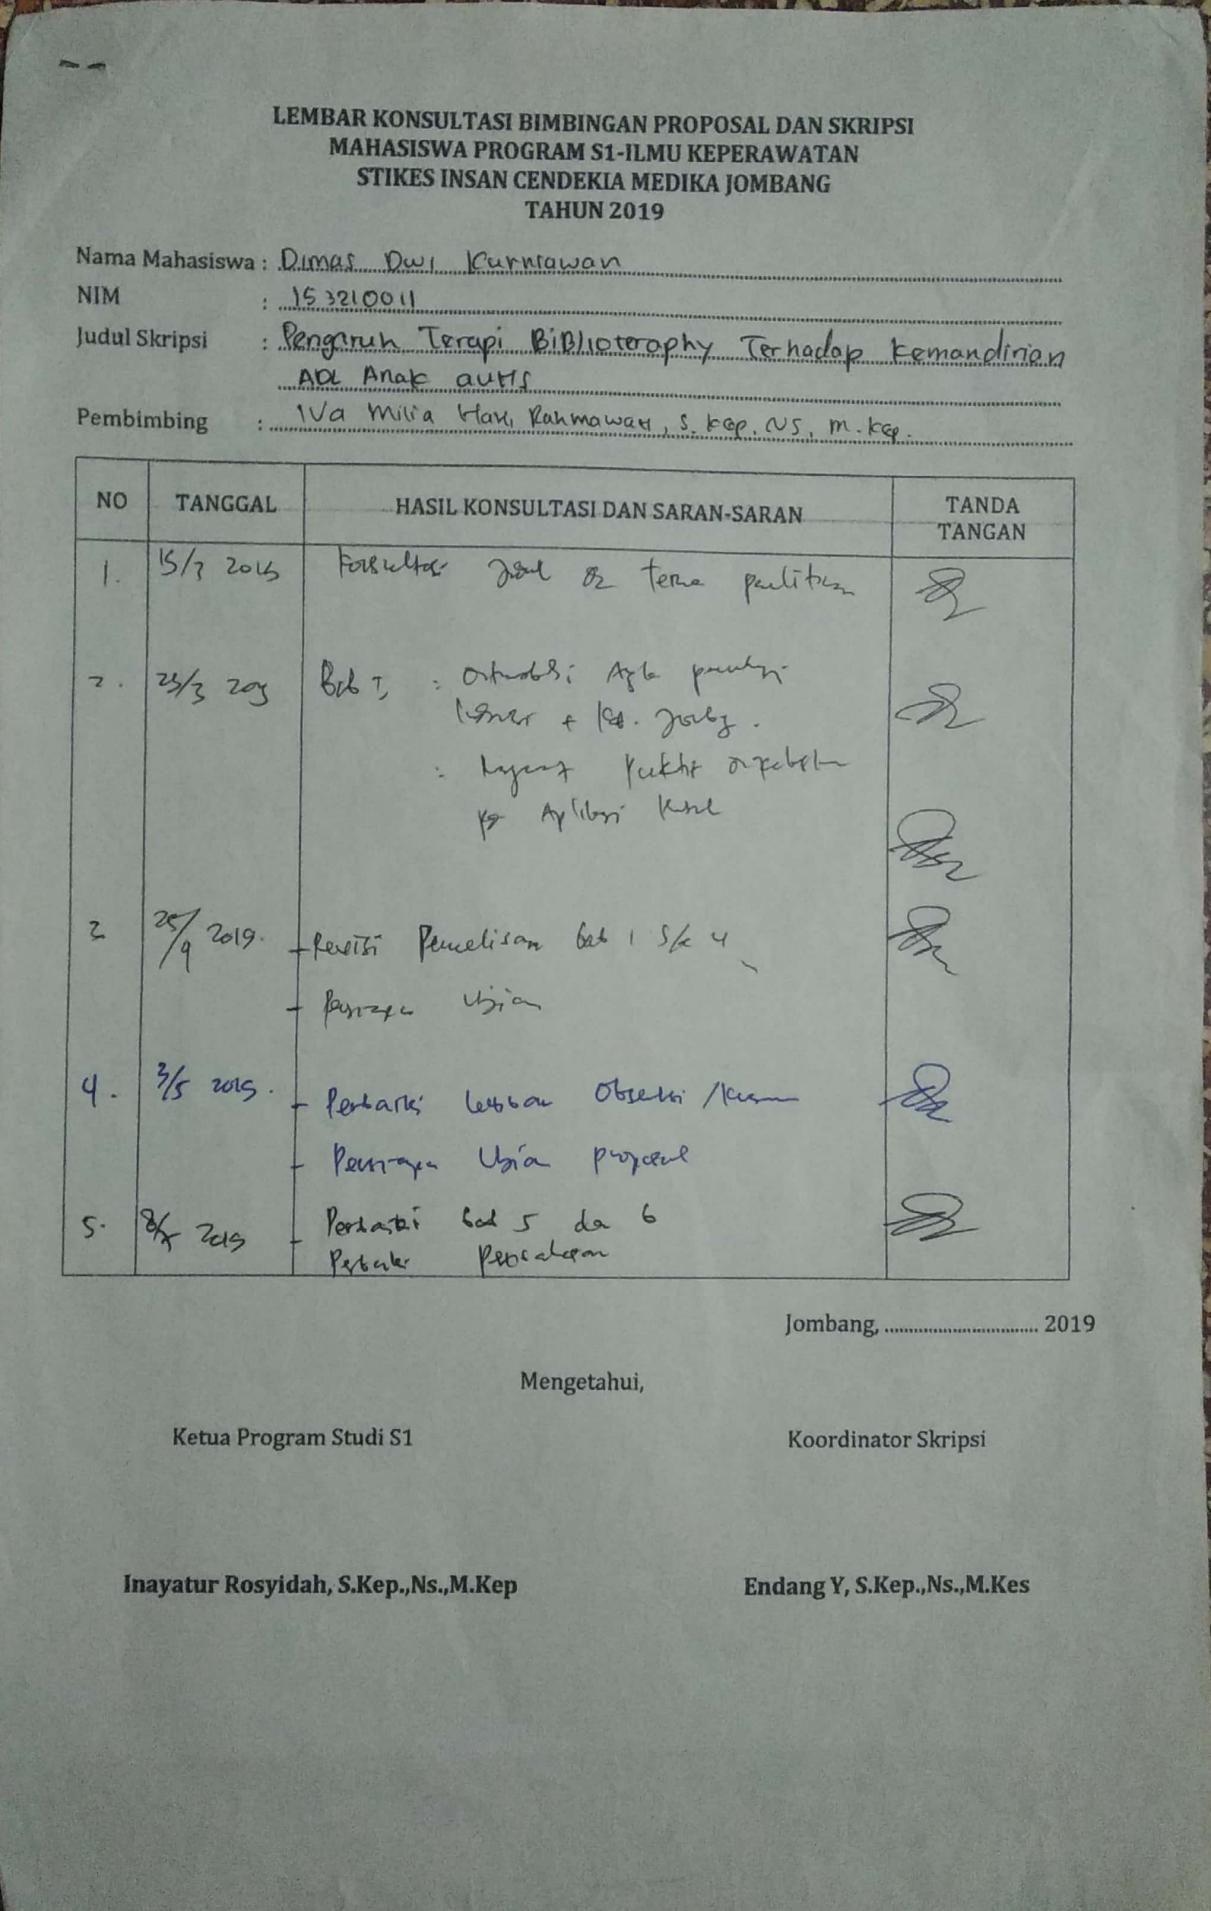 LEMBAR KONSULTASI BIMBINGAN PROPOSAL DAN SKRIPSI
MAHASISWA PROGRAM S1-ILMU KEPERAWATAN
STIKES INSAN CENDEKIA MEDIKA JOMBANG
TAHUN 2019
Nama Mahasiswa : Dimas Dwi Kurniawan
NIM : 153210011
Judul Skripsi : Pengaruh Terapi BiBlioteraphy Terhadap Kemandirian
ADL Anak autis
Pembimbing : Iva Milia Hani Rahmawati, S.Kep. NS, M.Kep.
NO TANGGAL HASIL KONSULTASI DAN SARAN-SARAN TANDA
TANGAN
1. 15/3 2019 Konsultasi Judul & tema penelitian
2. 2019 Bab I :
:
Aplikasi
3 25/4 2019. - Revisi Penulisan bab 1 s/d 4
- Persiapan Ujian
4. 3/5 2019. - Perbaiki lembar Observasi /
- Persiapan Ujian proposal
5. 2019 - Perbaiki bab 5 dan 6
Perbaiki
Jombang, ................................ 2019
Mengetahui,
Ketua Program Studi S1 Koordinator Skripsi
Inayatur Rosyidah, S.Kep.,Ns.,M.Kep Endang Y, S.Kep.,Ns.,M.Kes